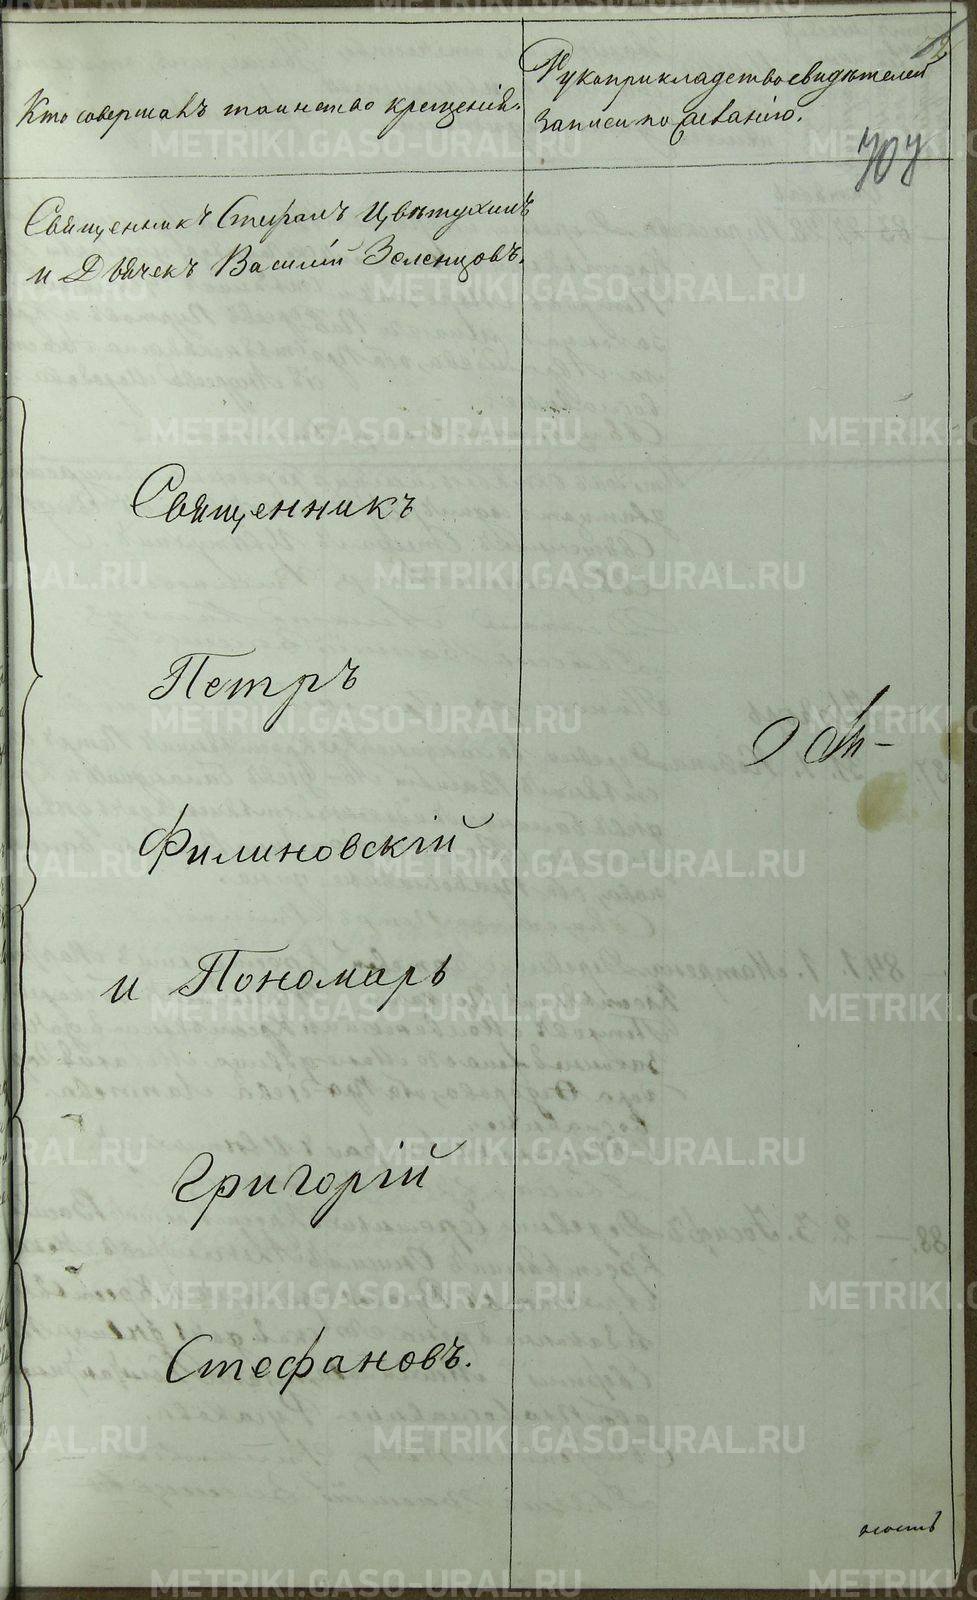 Кто совершалъ таинство крещенія.
Рукоприкладство свидѣтелей
записи по желанію.
Священникъ Стефанъ Цвѣтухинъ
и Дьячекъ Василій Зеленцовъ.
Священникъ
Петръ
Филиновскій
и Пономарь
Григорій
Стефановъ.
METRIKI.GASO-URAL.RU